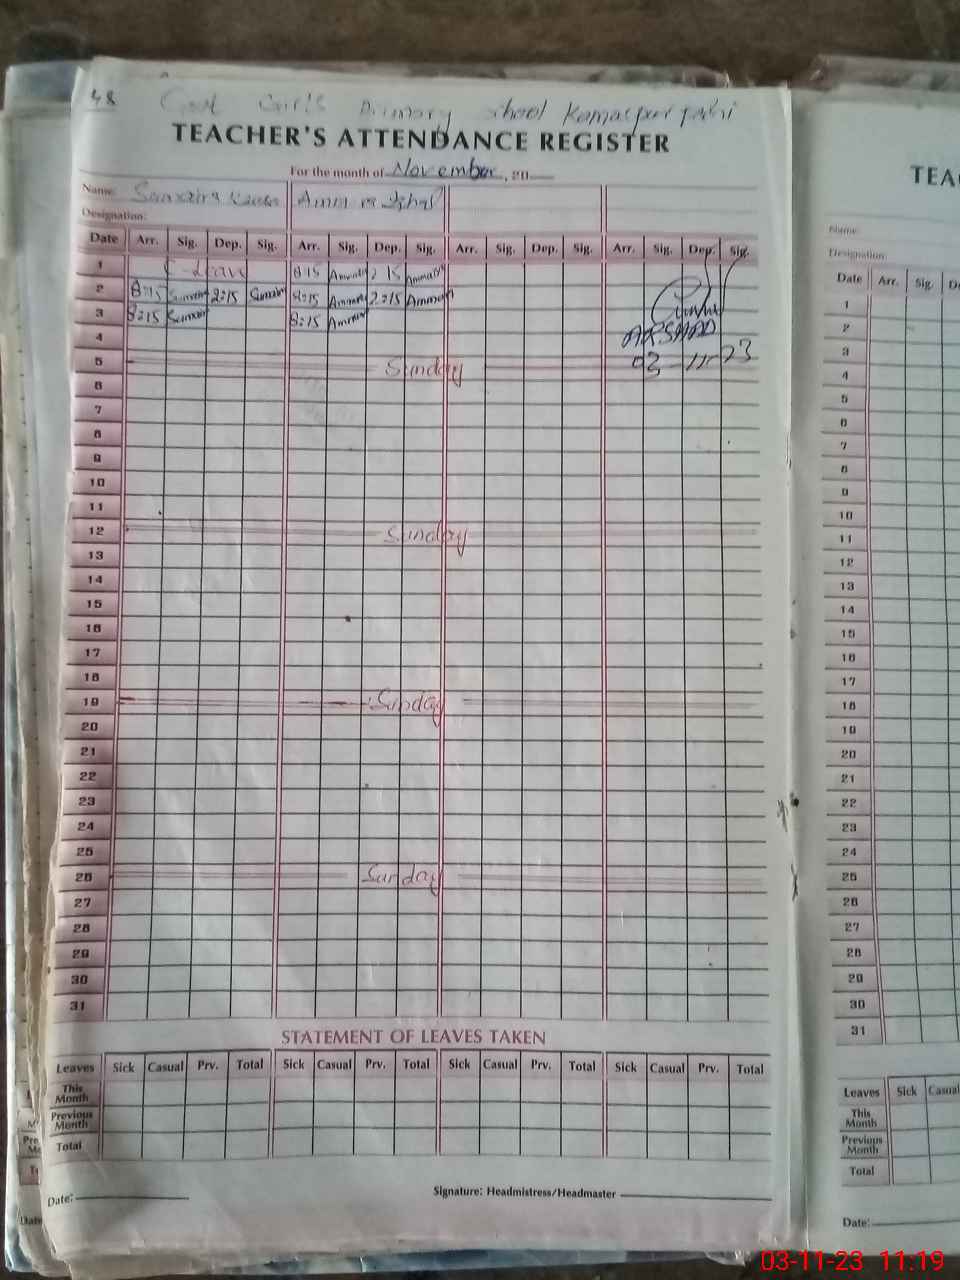 48 Govt Girls Primary School Kamaspur
TEACHER'S ATTENDANCE REGISTER
For the month of November, 20
Name: Sumaira Kausar
Designation:
Date Arr. Sig. Dep. Sig. Arr. Sig. Dep. Sig. Arr. Sig. Dep. Sig. Arr. Sig. Dep. Sig.
1 C-leave 8:15 2:15
2 8:15 Sumaira 2:15 Sumaira 8:15 2:15
3 8:15 Sumaira 8:15
ARSHAD
4
03-11-23
5 Sunday
6
7
8
9
10
11
12 Sunday
13
14
15
16
17
18
19 Sunday
20
21
22
23
24
25
26 Sunday
27
28
29
30
31
STATEMENT OF LEAVES TAKEN
Leaves Sick Casual Prv. Total Sick Casual Prv. Total Sick Casual Prv. Total Sick Casual Prv. Total
This Month
Previous Month
Total
Date:
Signature: Headmistress/Headmaster
TEA
Name:
Designation:
Date Arr. Sig.
1
2
3
4
5
6
7
8
9
10
11
12
13
14
15
16
17
18
19
20
21
22
23
24
25
26
27
28
29
30
31
Leaves Sick Casual
This Month
Previous Month
Total
Date:
03-11-23 11:19